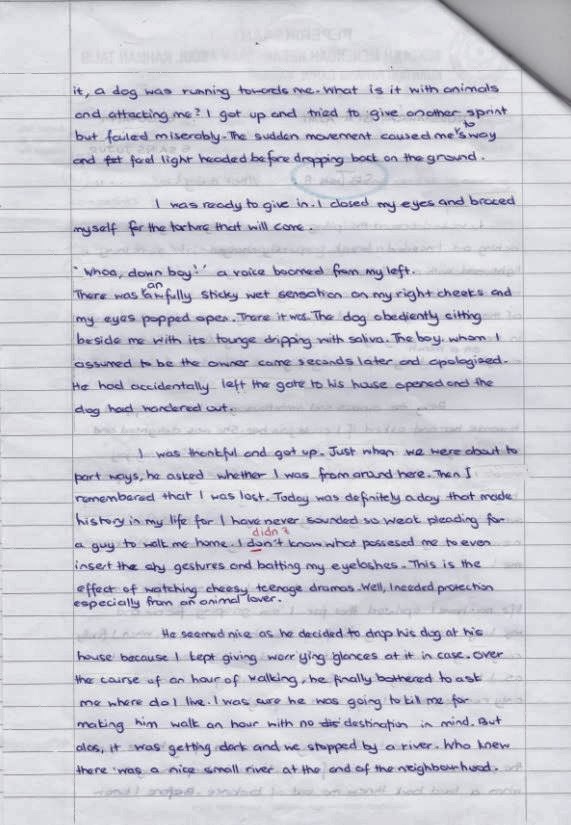 it, a dog was running towards me. What is it with animals
and attacking me? I got up and tried to give another sprint
but failed miserably. The sudden movement caused me to sway
and fet feel light headed before dropping back on the ground.
I was ready to give in. I closed my eyes and braced
myself for the torture that will come.
"Whoa, down boy!" a voice boomed from my left.
There was an awfully sticky wet sensation on my right cheeks and
my eyes popped open. There it was. The dog obediently sitting
beside me with its tounge dripping with saliva. The boy, whom I
assumed to be the owner came seconds later and apologised.
He had accidentally left the gate to his house opened and the
dog had wandered out.
I was thankful and got up. Just when we were about to
part ways, he asked whether I was from around here. Then I
remembered that I was lost. Today was definitely a day that made
history in my life for I have never sounded so weak pleading for
didn't
a guy to walk me home. I don't know what possesed me to even
insert the shy gestures and batting my eyelashes. This is the
effect of watching cheesy teenage dramas. Well, I needed protection
especially from an animal lover.
He seemed nice as he decided to drop his dog at his
house because I kept giving worrying glances at it in case. Over
the course of an hour of walking, he finally bothered to ask
me where do I live. I was sure he was going to kill me for
making him walk an hour with no dis destination in mind. But
alas, it was getting dark and we stopped by a river. Who knew
there was a nice small river at the end of the neighbourhood.